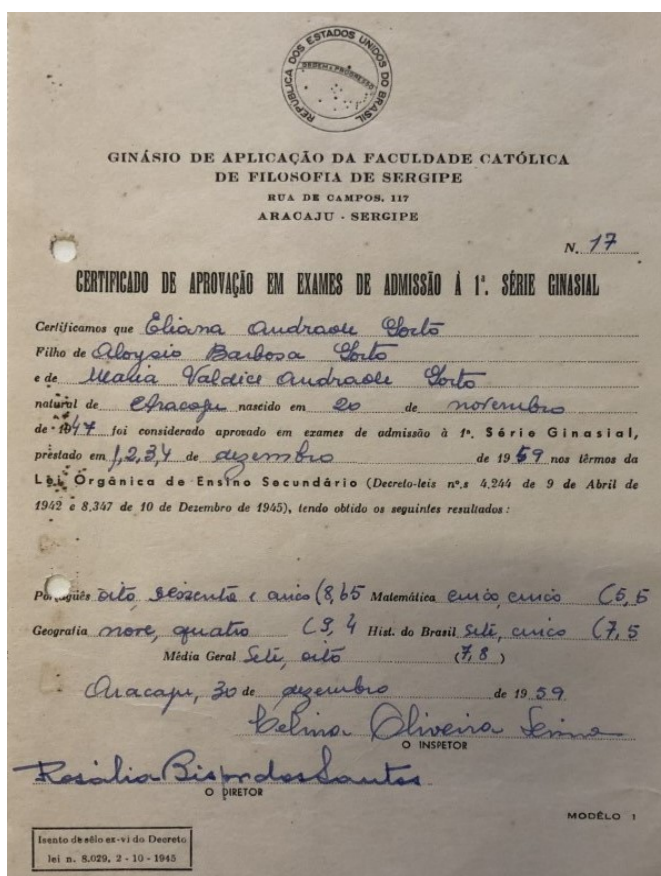 REPUBLICA DOS ESTADOS UNIDOS DO BRASIL
ORDEM E PROGRESSO
GINÁSIO DE APLICAÇÃO DA FACULDADE CATÓLICA
DE FILOSOFIA DE SERGIPE
RUA DE CAMPOS, 117
ARACAJU - SERGIPE
N. 17
CERTIFICADO DE APROVAÇÃO EM EXAMES DE ADMISSÃO À 1ª. SÉRIE GINASIAL
Certificamos que Eliana Andrade Porto
Filho de Aloysio Barbosa Porto
e de Maria Valdice Andrade Porto
natural de Aracaju nascido em 20 de novembro
de 1947 foi considerado aprovado em exames de admissão à 1ª. Série Ginasial,
prestado em 1,2,3,4 de dezembro de 1959 nos têrmos da
Lei Orgânica de Ensino Secundário (Decreto-leis nº.s 4.244 de 9 de Abril de
1942 e 8.347 de 10 de Dezembro de 1945), tendo obtido os seguintes resultados:
Português oito, sessenta e cinco (8,65 Matemática cinco, cinco (5,5
Geografia nove, quatro (9,4 Hist. do Brasil sete, cinco (7,5
Média Geral Sete, oito (7,8)
Aracaju, 30 de dezembro de 1959
Celina Oliveira
O INSPETOR
Rosália Bispo dos Santos
O DIRETOR
MODÊLO 1
Isento de sêlo ex-vi do Decreto
lei n. 8.029, 2 - 10 - 1945